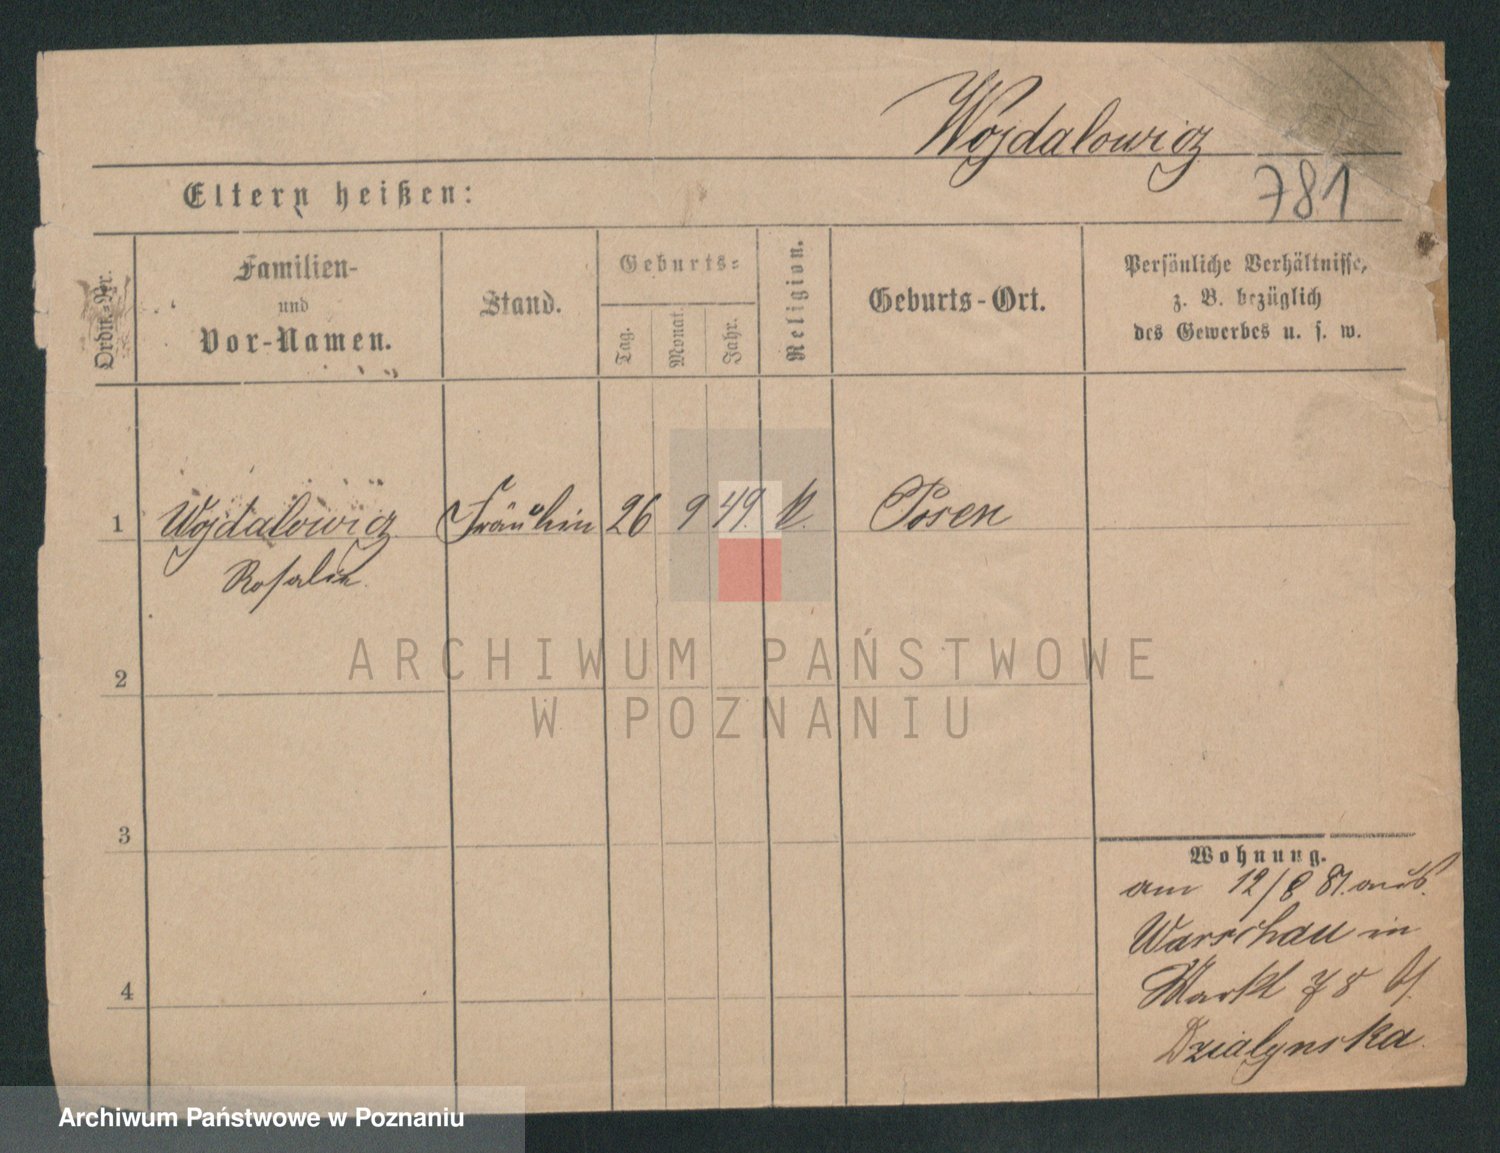 Wojdalowicz
781
Eltern heißen:
Ordn.-Nr.
Familien-
und
Vor-Namen.
Stand.
Geburts-
Tag.
Monat.
Jahr.
Religion.
Geburts-Ort.
Persönliche Verhältnisse,
z. B. bezüglich
des Gewerbes u. s. w.
1 Wojdalowicz Fräulein 26 9 49. k. Posen
Rosalie
2
ARCHIWUM PAŃSTWOWE
W POZNANIU
3
Wohnung.
am 12/8 81. aus
Warschau in
Markt 78 b/.
Dzialynska
4
Archiwum Państwowe w Poznaniu